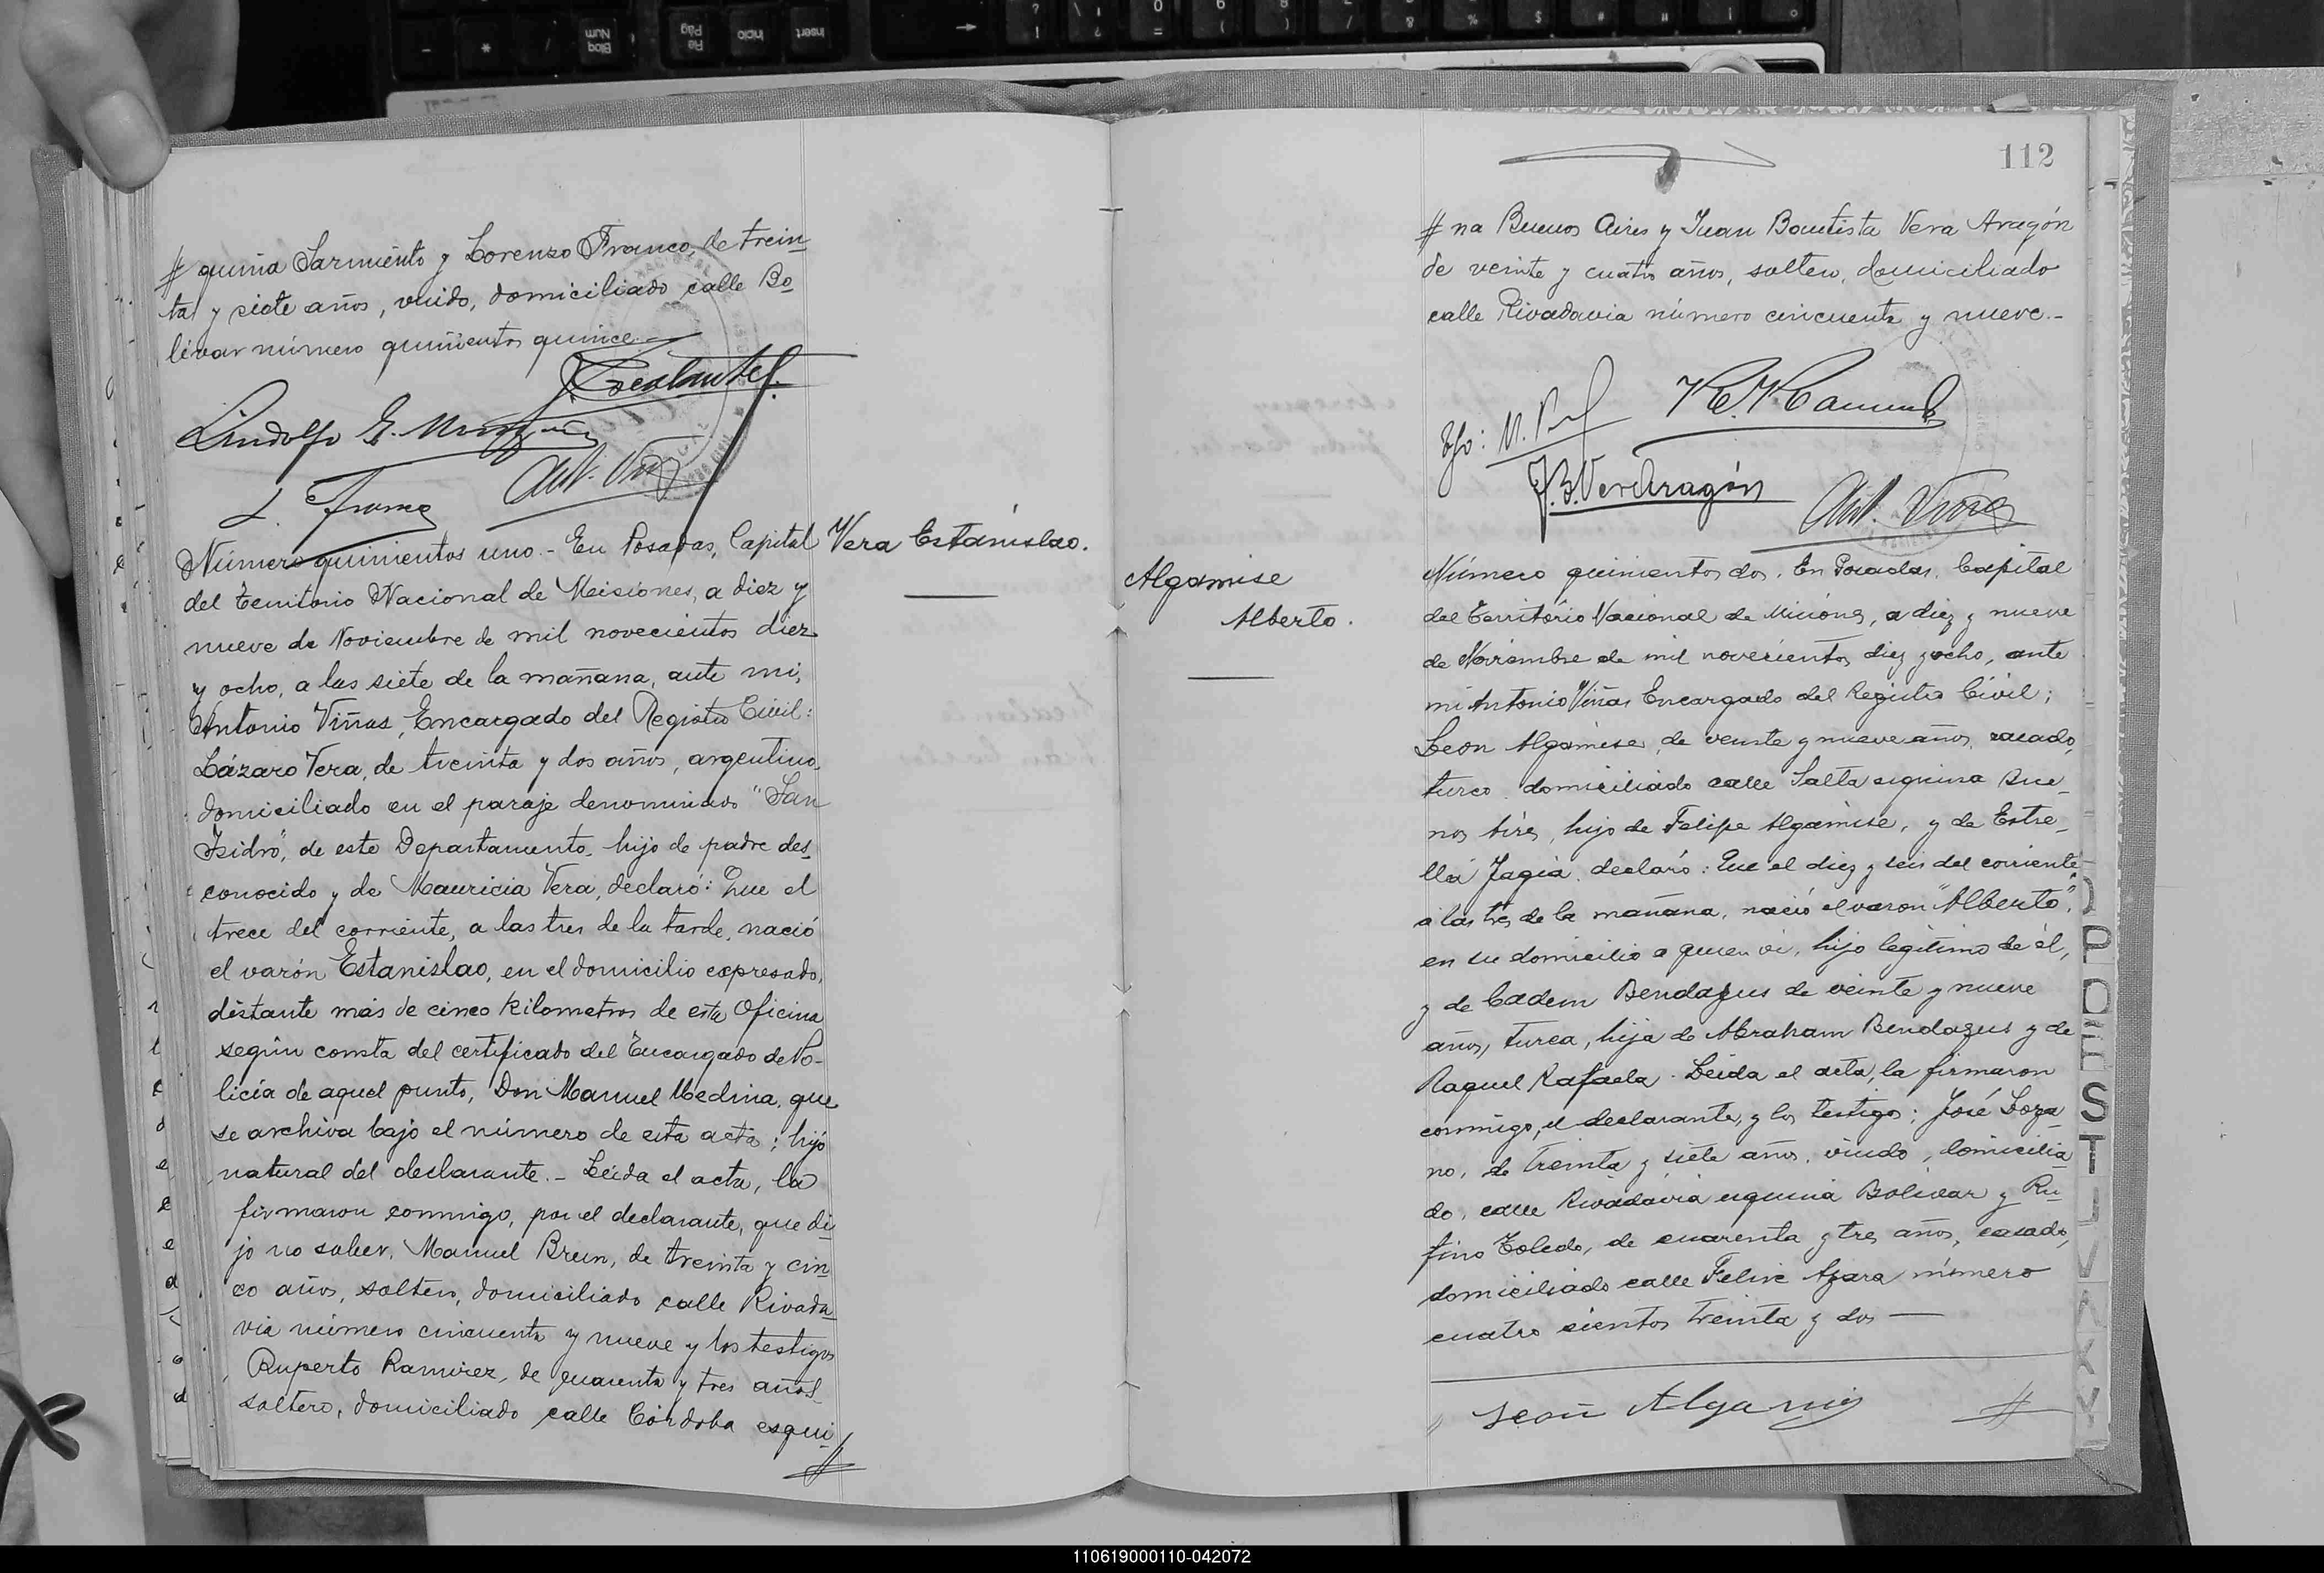 # quina Sarmiento y Lorenzo Franco, de trein
ta y siete años, viudo, domiciliado calle Bo
livar número quinientos quince.
Lindolfo E.
L. Franco
Ant. Viñas
Número quinientos uno.- En Posadas, Capital
Vera Estanislao.
del Territorio Nacional de Misiones, a diez y
nueve de Noviembre de mil novecientos diez
y ocho, a las siete de la mañana, ante mi,
Antonio Viñas, Encargado del Registro Civil:
Lázaro Vera, de treinta y dos años, argentino,
domiciliado en el paraje denominado "San
Isidro", de este Departamento, hijo de padre des
conocido y de Mauricia Vera, declaró: Que el
trece del corriente, a las tres de la tarde, nació
el varón Estanislao, en el domicilio expresado,
distante más de cinco kilometros de esta Oficina
según consta del certificado del Encargado de Po-
licía de aquel punto, Don Manuel Medina, que
se archiva bajo el número de esta acta; hijo
natural del declarante.- Leída el acta, la
firmaron conmigo, por el declarante, que di
jo no saber, Manuel Breun, de treinta y cin
co años, soltero, domiciliado calle Rivada
via número cincuenta y nueve y los testigos
Ruperto Ramirez, de cuarenta y tres años,
soltero, domiciliado calle Córdoba esqui
#
112
# na Buenos Aires y Juan Bautista Vera Aragón
de veinte y cuatro años, soltero, domiciliado
calle Rivadavia número cincuenta y nueve.-
J.B. Ver Aragón
Ant. Viñas
Algamise
Alberto.
Número quinientos dos. En Posadas, Capital
del Territorio Nacional de Misiones, a diez y nueve
de Noviembre de mil novecientos diez y ocho, ante
mi Antonio Viñas Encargado del Registro Civil;
Leon Algamise, de veinte y nueve años, casado,
turco, domiciliado calle Salta esquina Bue-
nos Aires, hijo de Felipe Algamise, y de Estre-
lla Jagia, declaró: Que el diez y seis del corriente
a las tres de la mañana, nació el varon "Alberto",
en su domicilio a quien vi, hijo legitimo de él,
y de Cadem Bendazus de veinte y nueve
años, turca, hija de Abraham Bendazus y de
Raquel Rafaela. Leida el acta, la firmaron
conmigo, el declarante, y los testigos: José Loza-
no, de treinta y siete años, viudo, domicilia
do, calle Rivadavia esquina Bolivar y Ru-
fino Toledo, de cuarenta y tres años, casado,
domiciliado calle Felix Azara número
cuatro sientos treinta y dos —
Leon Algamis
#
P
S
T
V
X
Y
110619000110-042072